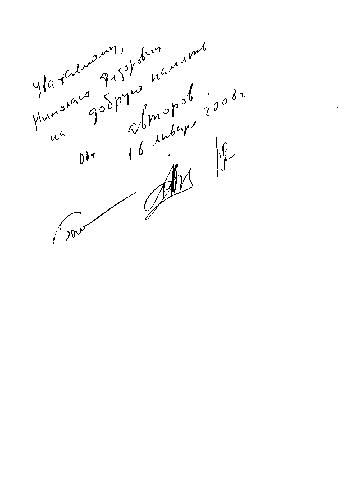 Уважаемому,
Николаю Федоровичу
на добрую память
от авторов.
16 января 2008 г